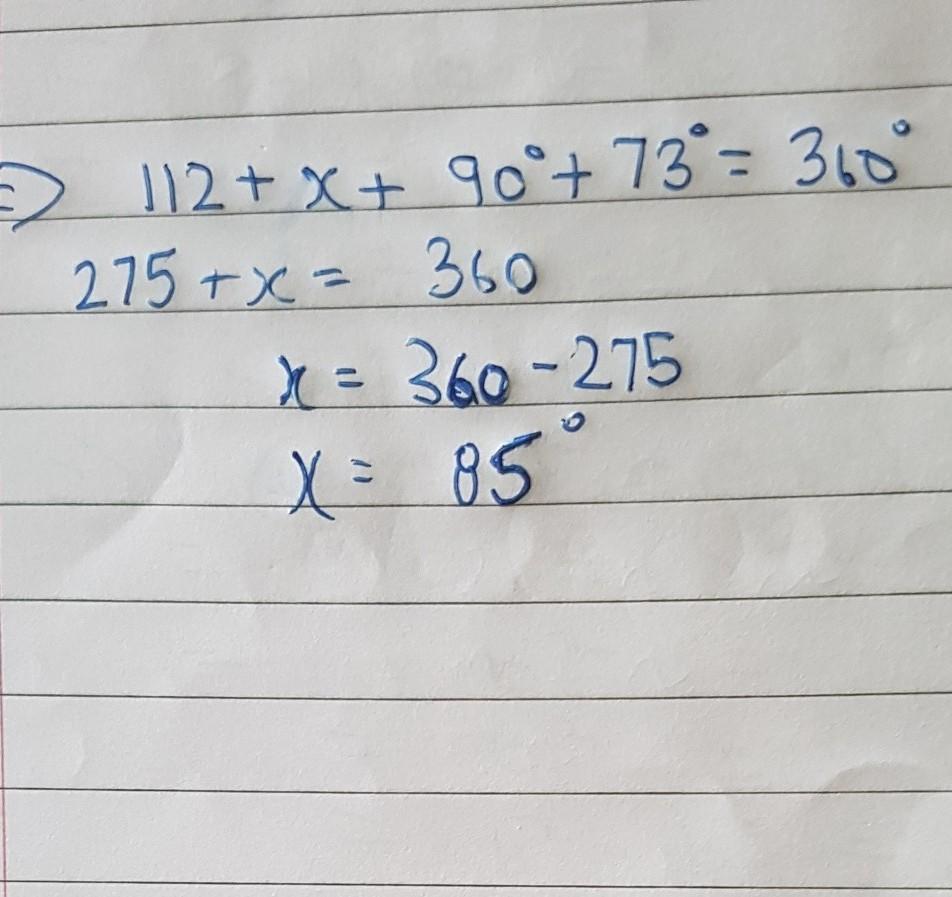 ⇒ 112 + x + 90° + 73° = 360°
275 + x = 360
x = 360 - 275
x = 85°